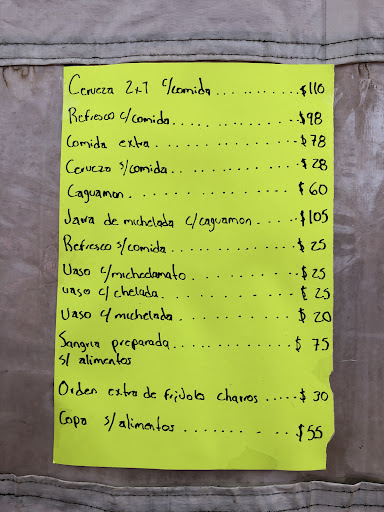 Cerveza 2x1 c/comida .......... $110
Refresco c/comida .......... $98
Comida extra .......... $78
Cerveza s/comida .......... $28
Caguamon .......... $60
Jarra de michelada c/caguamon .... $105
Refresco s/comida .......... $25
Vaso c/michedamato .......... $25
vaso c/ chelada .......... $25
Vaso c/ michelada .......... $20
Sangria preparada .......... $75
s/ alimentos
Orden extra de frijoles charros ..... $30
Copa s/ alimentos .......... $55